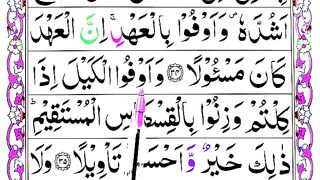 اَشُدَّهٗ ۪ وَاَوْفُوْا بِالْعَهْدِ ۚ اِنَّ الْعَهْدَ
كَانَ مَسْـُٔوْلًا ﴿۳۴﴾ وَاَوْفُوا الْكَيْلَ اِذَا
كِلْتُمْ وَزِنُوْا بِالْقِسْطَاسِ الْمُسْتَقِيْمِ ؕ
ذٰلِكَ خَيْرٌ وَّاَحْسَنُ تَاْوِيْلًا ﴿۳۵﴾ وَلَا